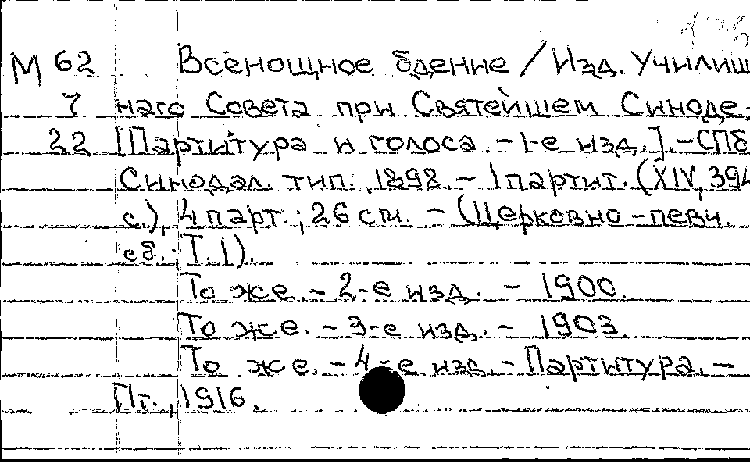 М 62 Всенощное бдение / Изд. Училищ
7 наго Совета при Святейшем Синоде.
22 [Партитура и голоса. - 1-е изд.]. - СПб
Синодал. тип., 1898. - 1 партит. (XIV, 394
с.), 4 парт.; 26 см. - (Церковно-певч.
сб.: Т. 1).
То же. - 2-е изд. - 1900.
То же. - 3-е изд. - 1903.
То же. - 4-е изд. - Партитура. -
Пг., 1916.